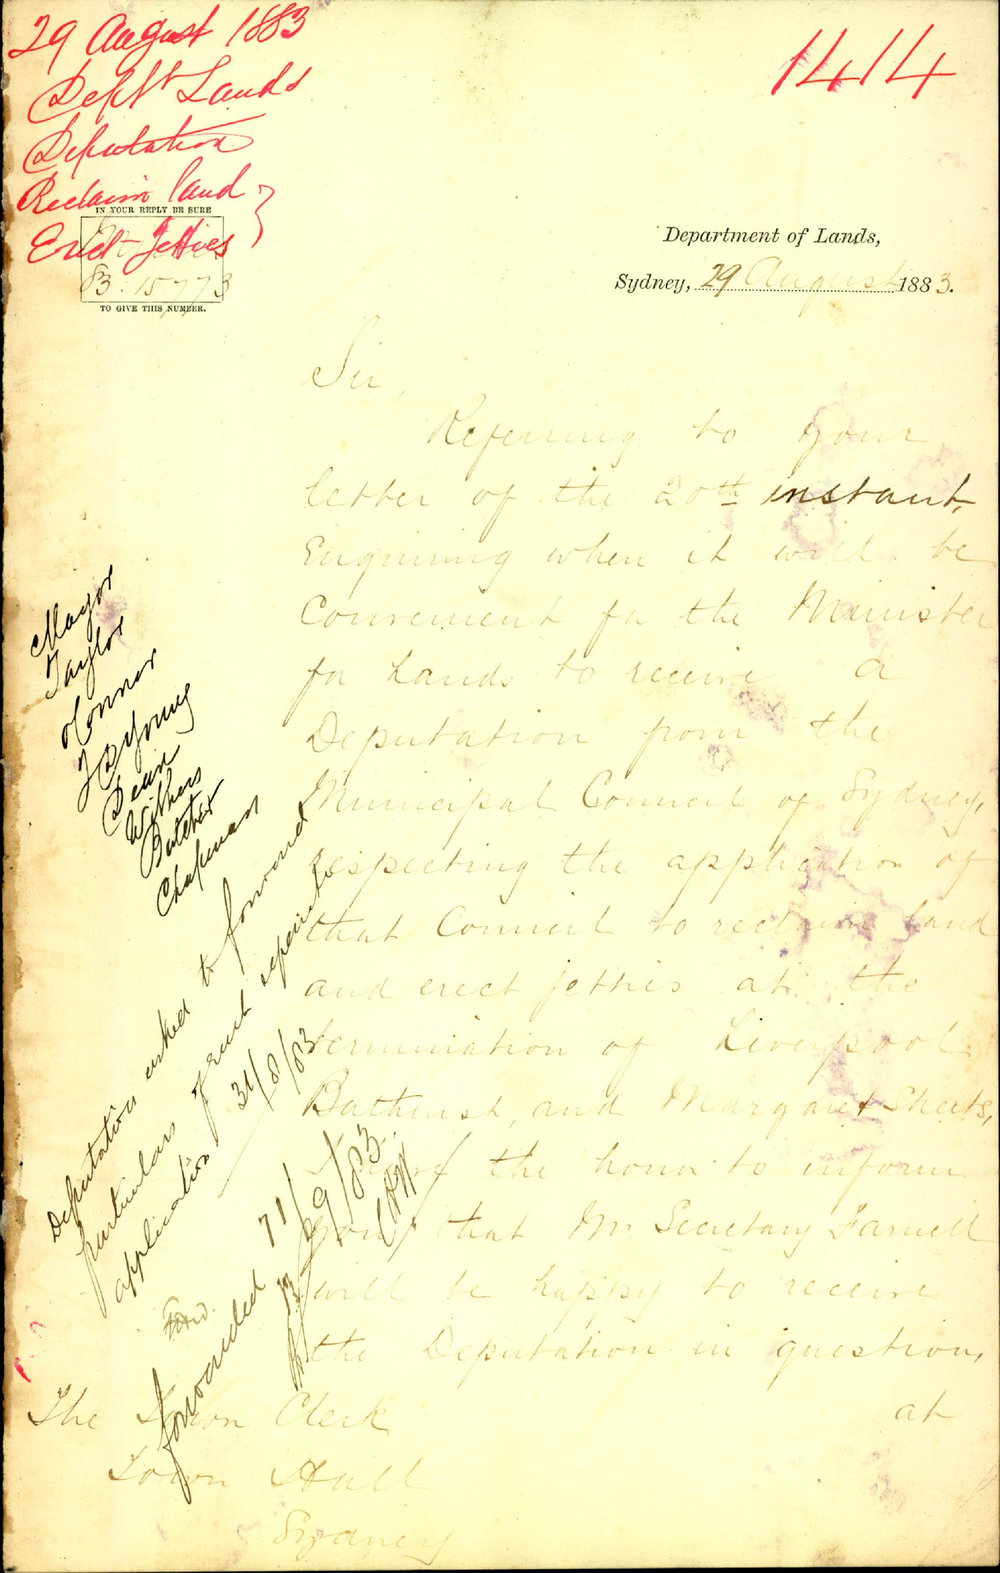 29 August 1883
Dept Lands
Deputation
Reclaim land
Erect Jetties
1414
IN YOUR REPLY BE SURE
83. 15773
TO GIVE THIS NUMBER.
Department of Lands,
Sydney, 29 August 1883.
Sir,
Referring to your
letter of the 20th instant,
Enquiring when it will be
Convenient for the Minister
for Lands to receive a
Deputation from the
Municipal Council of Sydney,
respecting the application of
that Council to reclaim land
and erect jetties at the
termination of Liverpool
Bathurst, and Margaret Streets,
I have the honor to inform
you that Mr. Secretary Farnell
will be happy to receive
the Deputation in question,
at
The Town Clerk
Town Hall
Sydney
Mayor
Taylor
O'Connor
Young
Dean
Withers
Butcher
Chapman
Deputation asked to forward
particulars of each separate
application 31/8/83
Forwarded 11/9/83